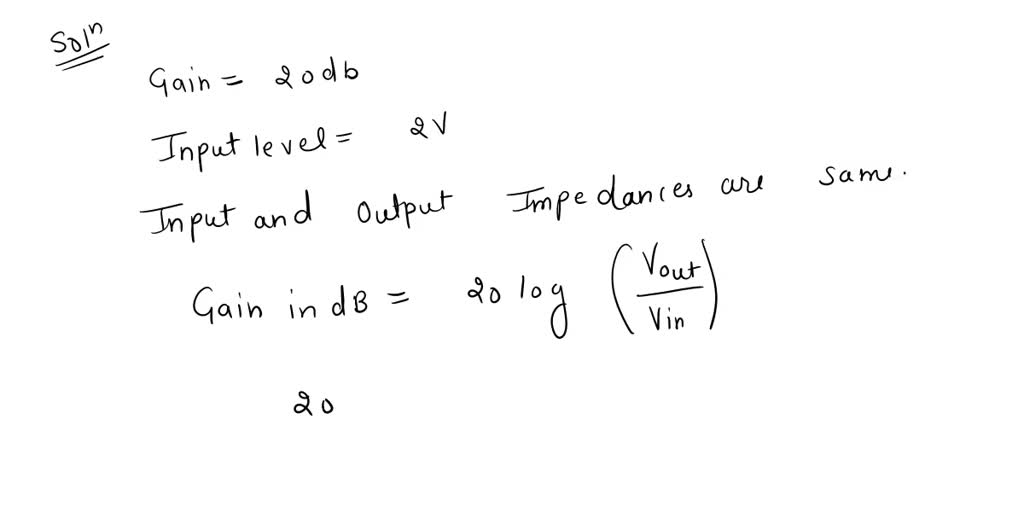 Solⁿ
Gain = 20db
Input level = 2V
Input and Output Impedances are same.
Gain in dB = 20 log (Vout/Vin)
20